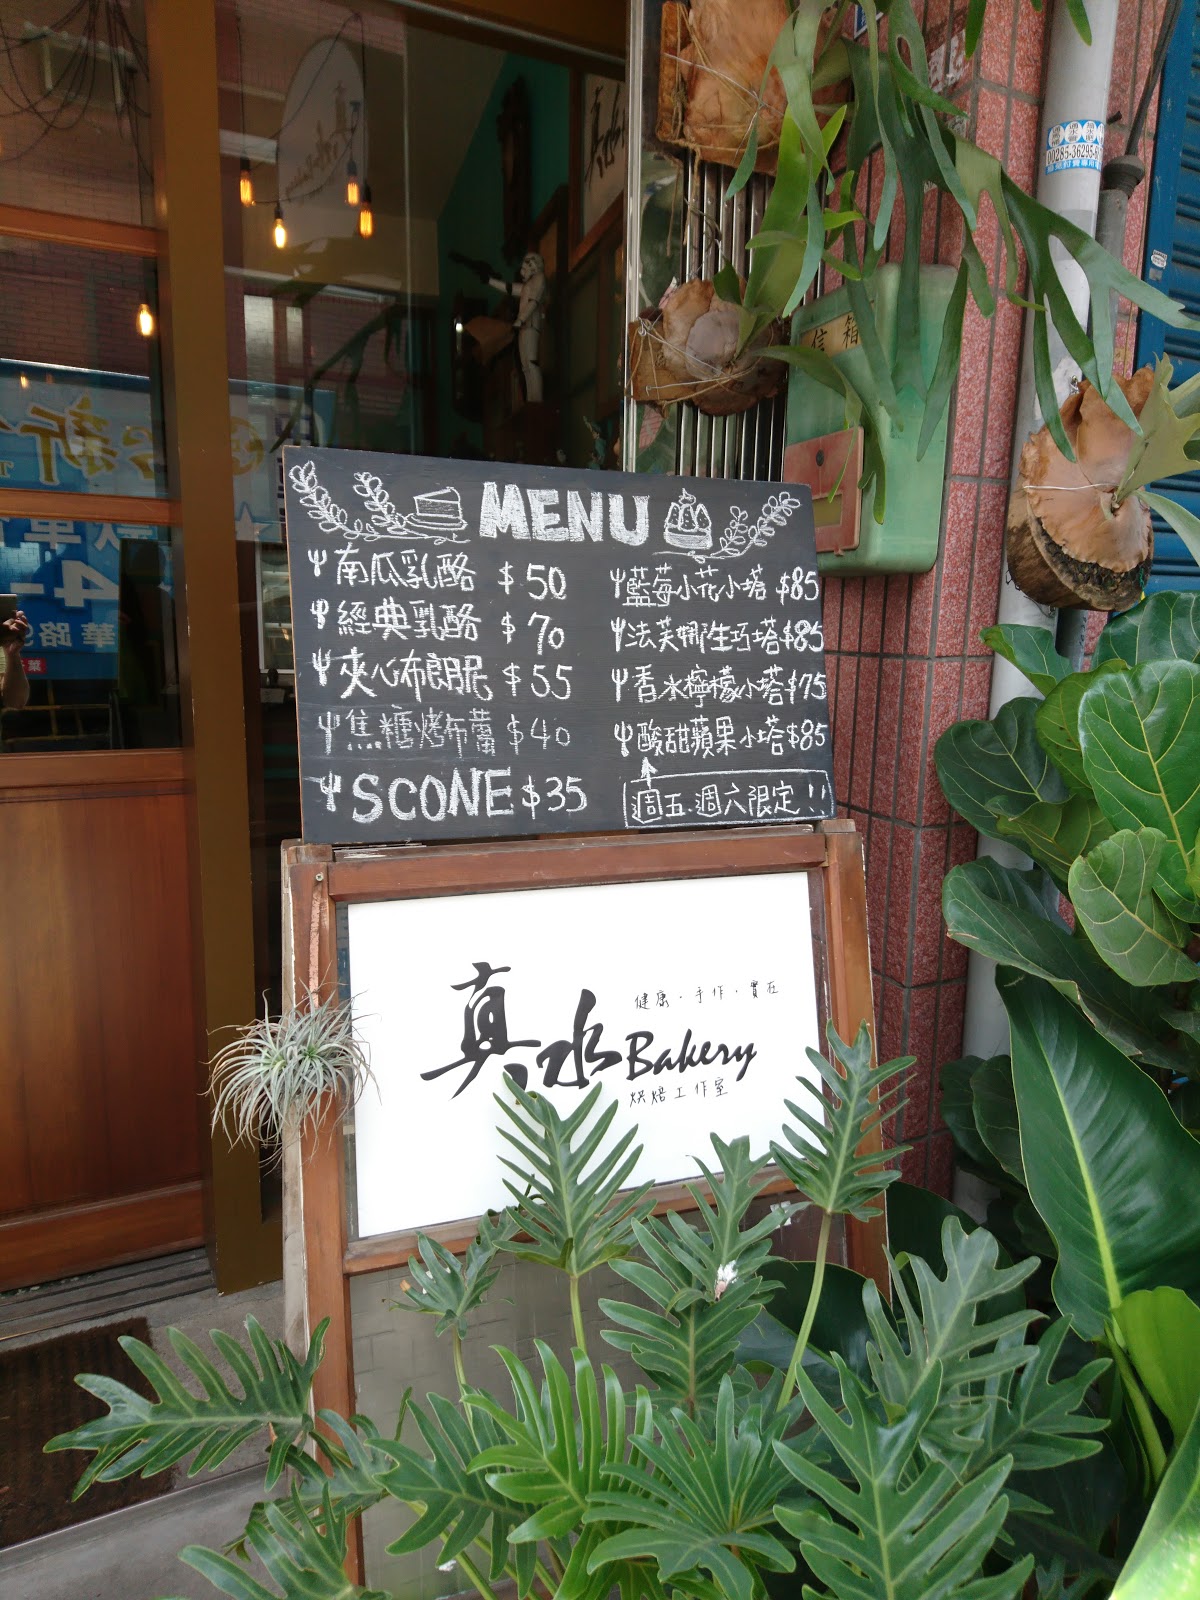 MENU
南瓜乳酪 $50
經典乳酪 $70
夾心布朗尼 $55
焦糖烤布蕾 $40
SCONE $35
藍莓小花小塔 $85
法芙娜生巧塔 $85
香水檸檬小塔 $75
酸甜蘋果小塔 $85
週五.週六限定!!
真水 Bakery
健康.手作.實在
烘焙工作室
信箱
00285-36295-6